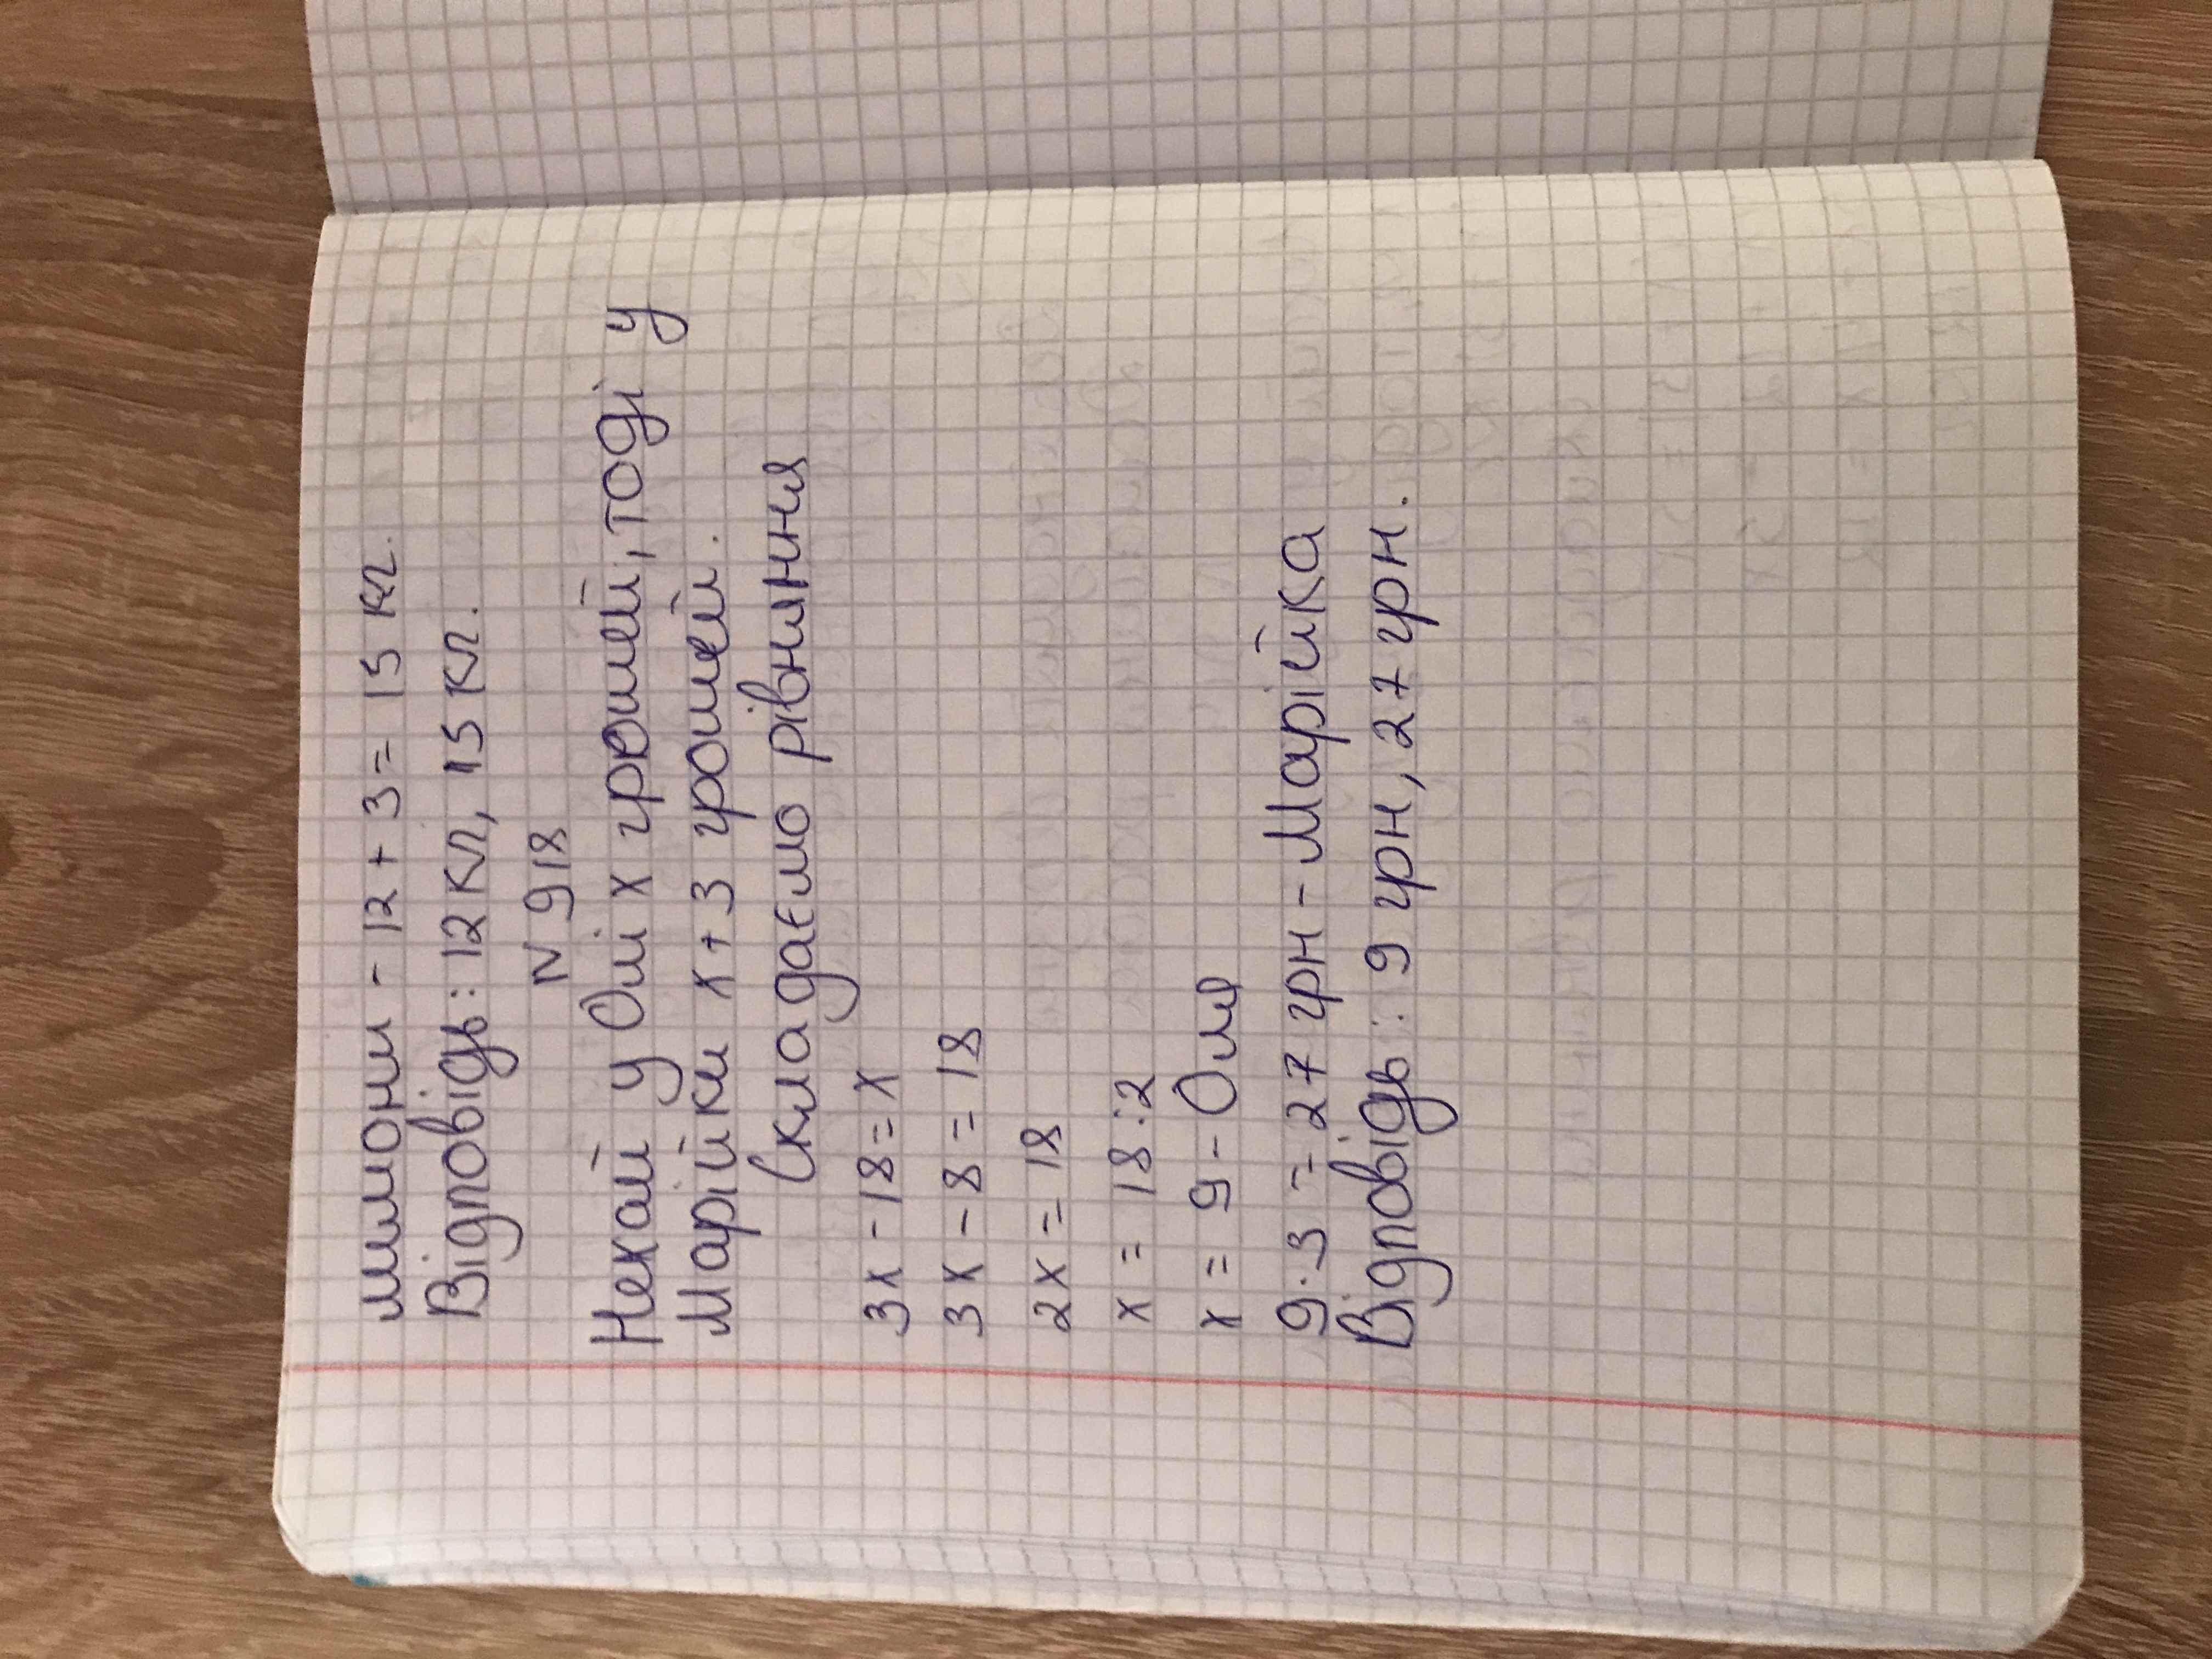 лимони - 12 + 3 = 15 кг.
Відповідь: 12 кг, 15 кг.
N 918
Нехай у Олі х грошей, тоді у
Марійки х + 3 грошей.
Складаємо рівняння
3х - 18 = х
3х - 8 = 18
2х = 18
х = 18 : 2
х = 9 - Оля
9 · 3 = 27 грн - Марійка
Відповідь: 9 грн, 27 грн.